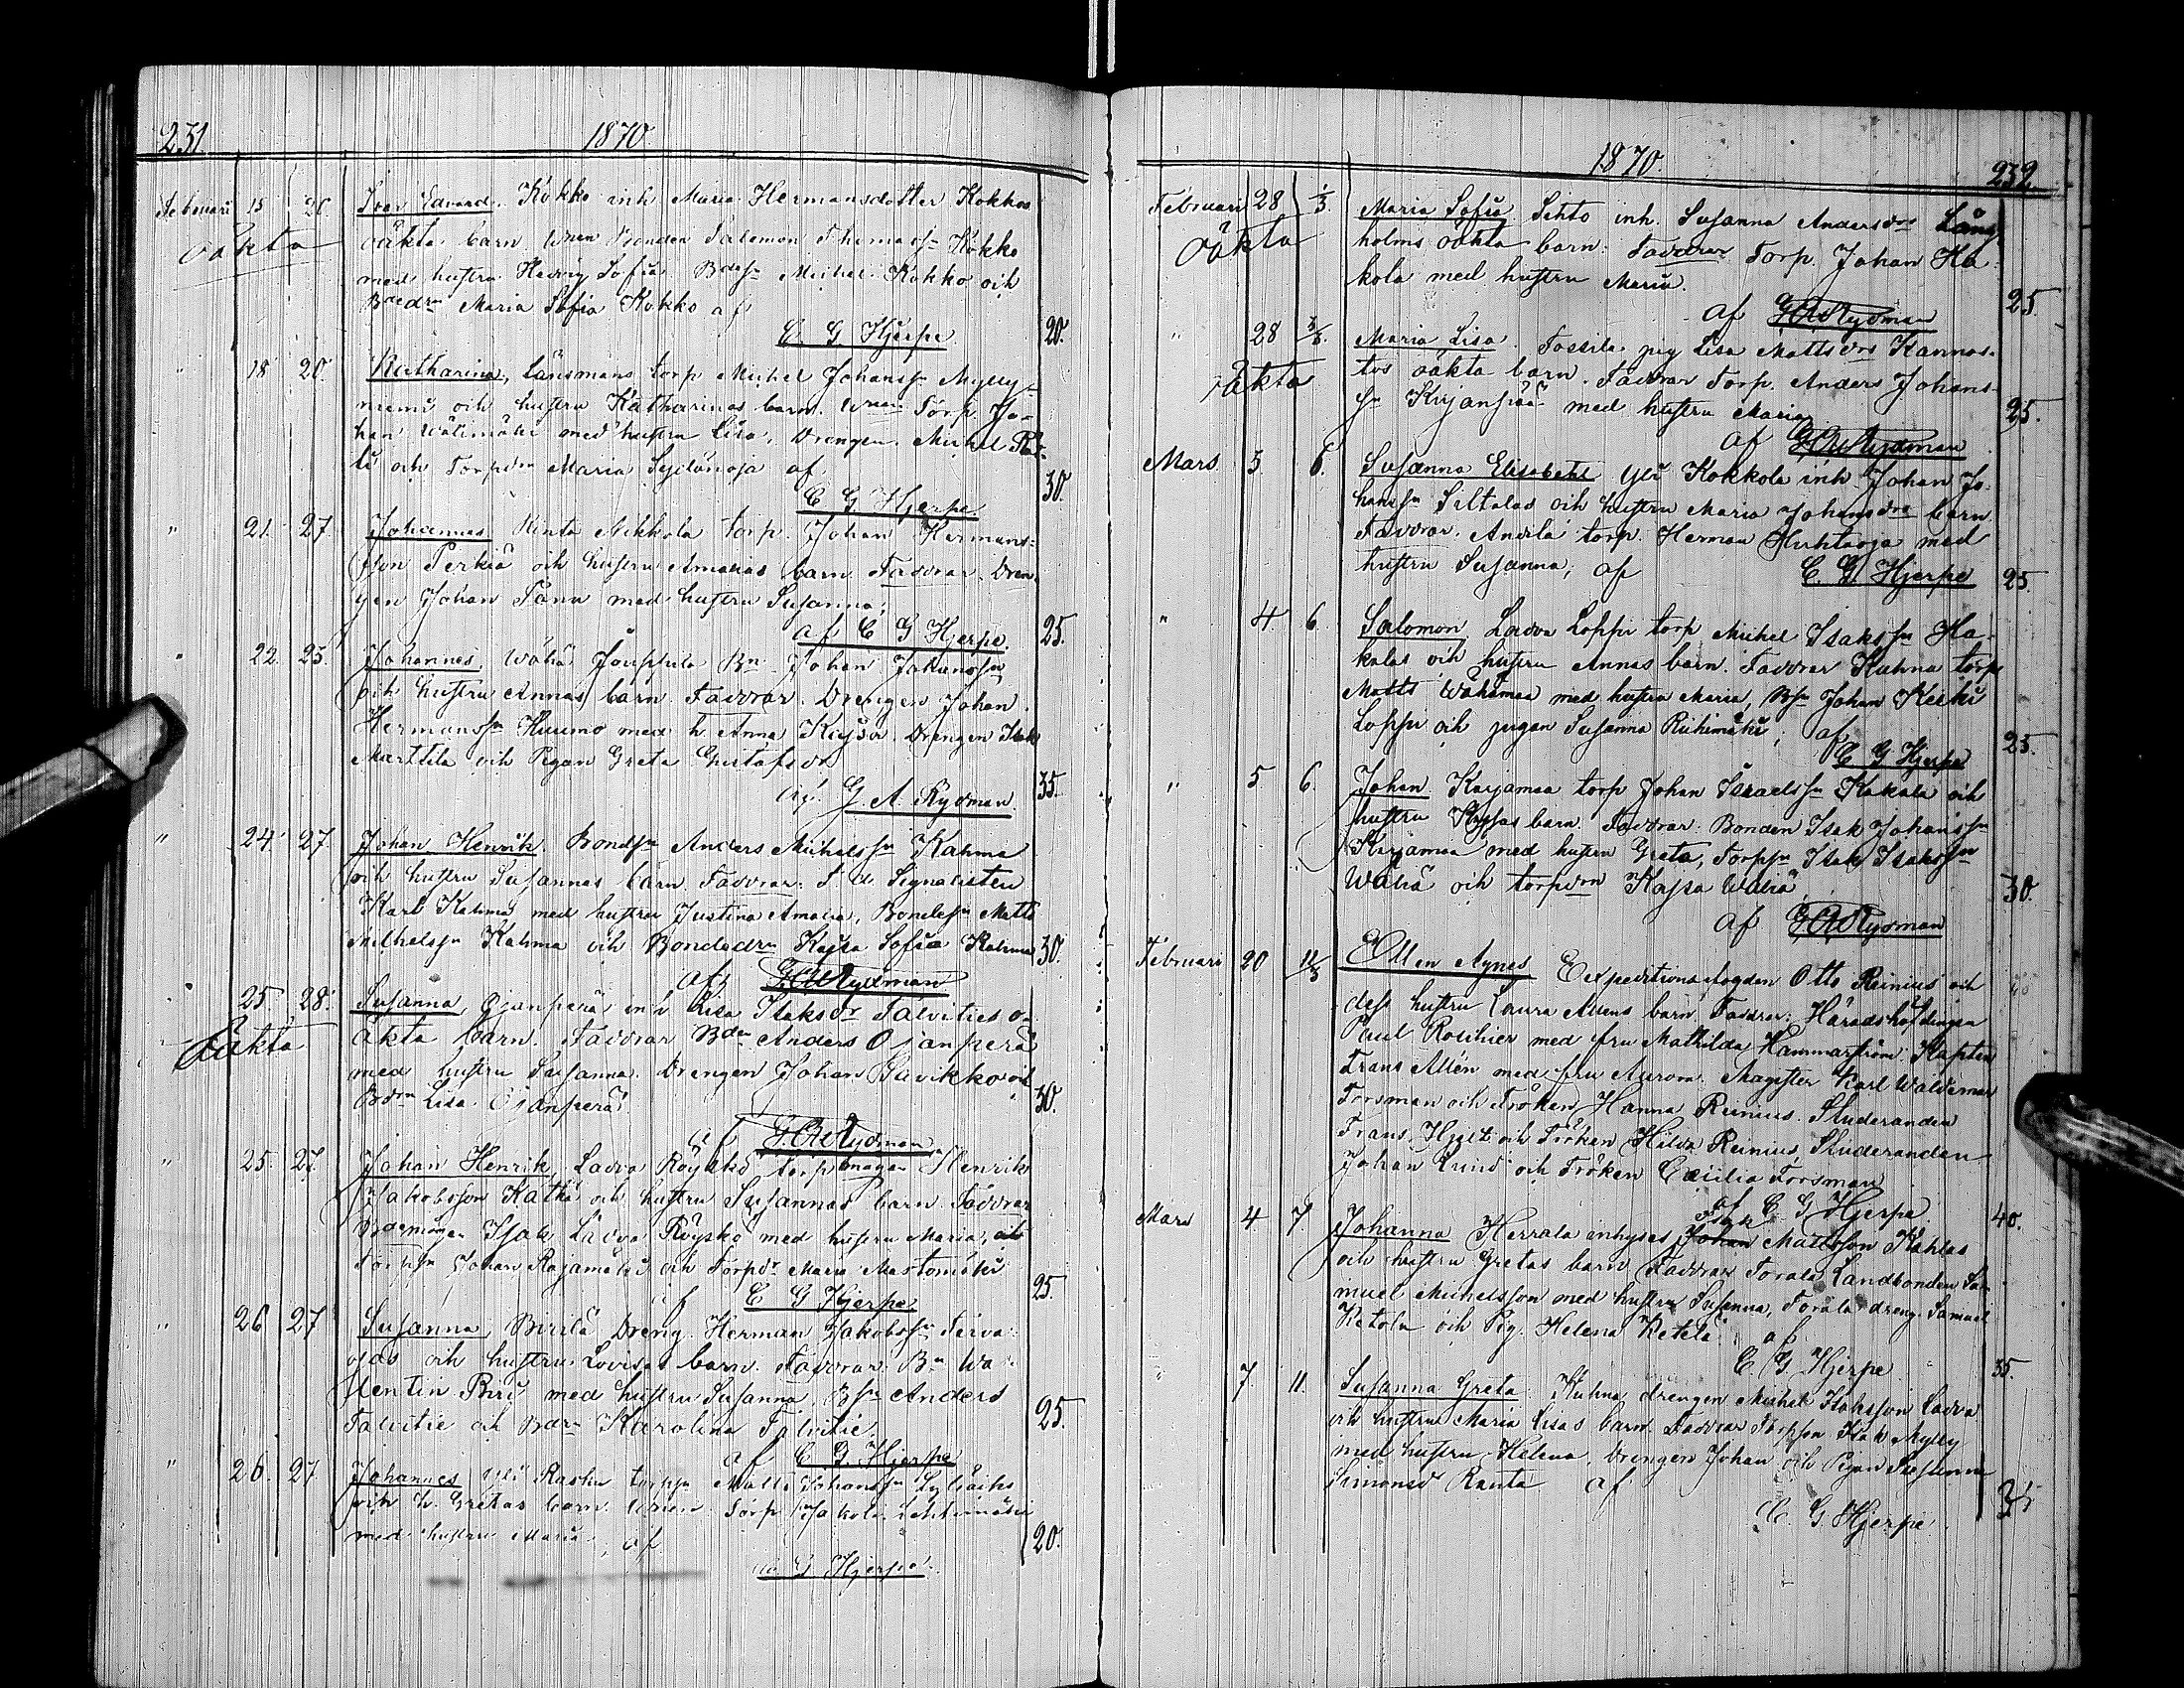 231 1870.
Februari 15 20. Ivar Edvard. Kokko inh Maria Hermansdotter Kokkos
oäkta oäkta barn. Wnen Bonden Salomon Thomass Kokko
med hustru Hedvig Sofia. Michel Kokko och
Maria Sofia Kokko af
C. G. Hjerpe 20.
" 18 20. Katharina, Länsmans torp Michel Johanss Mylly-
niemi och hustru Katharinas barn. Wnen Torp. Jo-
han med hustru Lisa, Drengen Michel
och Maria af
C G Hjerpe 30.
" 21. 27 Johannes Hinta Nikkola torp. Johan Hermans-
son Perkiö och hustru Amalias barn Faddrar Dren-
gen Johan med hustru Susanna;
af C G Hjerpe. 25.
" 22. 25. Johannes, Wähä Jouppila Bn Johan Johanss
och hustru Annas barn. Faddrar. Drengen Johan
Hermanss Huumo med h. Anna Kajsa. Drengen Isak
Marttila och Pigan Greta Gustafsdr
G. A. Rydman 35.
" 24. 27. Johan Henrik. Anders Michelss Kahma
och hustru Susannas barn. Faddrar: F. d. Signalisten
Karl Kahma med hustru Justina Amalia, Matts
Michelss Kahma och Kajsa Sofia Kahma 30.
af G A Rydman
" 25. 28. Susanna, Ojanperä inh Lisa Isaksdr Talvities o-
oäkta äkta barn. Faddrar Anders Ojanperä
med hustru Susanna. Drengen Johan Pavikko och
Lisa Ojanperä 30.
af G A Rydman
" 25. 27. Johan Henrik, Ladva Röyskö Henrik
Jakobsson och hustru Susannas barn. Faddrar
Isak Ladva Röyskö med hustru Maria,
Johan Rajamäki och Maria
af C G Hjerpe 25.
" 26 27 Susanna, Birilä Dreng. Herman Jakobss
ojas och hustru Lovisas barn. Faddrar: Bn Wa-
lentin Biri med hustru Susanna, Anders
Talvitie och Karolina Talvitie. 25.
af C G Hjerpe
" 26. 27 Johannes, Yli Rasku Matts Johanss
och h. Gretas barn. Wnen Torp Jakob Lehtimäki
med hustru Maria, af 20.
C G Hjerpe
1870. 232
Februari 28 1/3. Maria Sofia. Lehto inh. Susanna Andersdrs Lång-
oäkta holms oäkta barn. Faddrar Torp. Johan Ha-
kola med hustru Maria.
af G A Rydman 25
" 28 Maria Lisa. Tossila pig Lisa Mattsdrs Kannas-
oäkta tos oäkta barn. Faddrar Torp. Anders Johans-
sn med hustru Maria 25.
af G A Rydman
Mars 3. 6. Susanna Elisabeth Yli Kokkola inh Johan Jo-
hanss Siltalas och hustru Maria Johansdrs barn.
Faddrar. Andila torp. Herman Huhtaoja med
hustru Susanna, af C G Hjerpe 25.
" 4. 6. Salomon, Ladva Loppi torp Michel Isakss Ha-
kalas och hustru Annas barn. Faddrar Kahma torp
Matts Wähämaa med hustru Maria, Johan Keski
Loppi och pigan Susanna Riihimäki, af
C G Hjerpe 25.
" 5 6. Johan. Karjamaa torp Johan Israelss Kakala och
hustru Kajsas barn. Faddrar. Bonden Isak Johanss
Karjamaa med hustru Greta, Isak Isakss
och Kajsa 30.
af G A Rydman
Februari 20 11/3 Ellen Agnes Expeditionsfogden Otto Reinius och
dess hustru Laura Allens barn. Faddrar: Häradshöfdingen
Paul Roschier med fru Mathilda Hammarström. Kapten
Frans Allén med fru Aurora. Magister Karl Waldemar
Forsman och Fröken Hanna Reinius. Studeranden
Frans Hjelt och Fröken Hilda Reinius, Studeranden
Johan Lund och Fröken Cæcilia Forsman
af C G Hjerpe 40.
Mars 4 7. Johanna Herrala inhyses Johan Isak Mattsson
och hustru Gretas barn Faddrar Torala Landbonden Sa-
muel Michelsson med hustru Susanna, Torala dreng. Samuel
Ketola och Pig. Helena Ketola af
C G Hjerpe 35.
" 7 11. Susanna Greta. Kuhna drengen Michel Isaksson Ladva
och hustru Maria Lisas barn. Faddrar Isak Mylly
med hustru Helena, Drengen Johan och Pigan Susanna
Simonsd Ranta af
C. G. Hjerpe 35